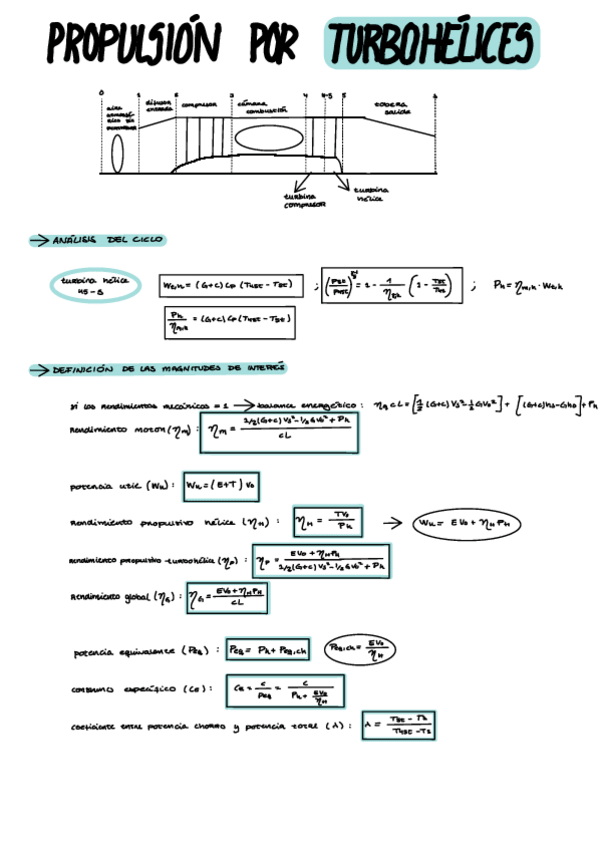 PROPULSIÓN POR TURBOHÉLICES
0 1 2 3 4 4-5 5
difusor entrada
compresor
cámara combustión
tobera salida
turbina compresor
turbina hélice
→ ANÁLISIS DEL CICLO
turbina hélice 45-5
Wt,h = (G+c) Cp (T45t - T5t) ;
; Ph = ηm,h · Wt,h
Ph/ηm,h = (G+c) Cp (T45t - T5t)
→ DEFINICIÓN DE LAS MAGNITUDES DE INTERÉS
si los rendimientos mecánicos = 1 → balance energético :
rendimiento motor (ηM) : ηM = (1/2(G+c) Vs² - 1/2 GV0² + Ph) / cL
potencia util (Wu) : Wu = (E+T) V0
rendimiento propulsivo hélice (ηH) : ηH = TV0 / Ph → Wu = EV0 + ηH Ph
rendimiento propulsivo-turbohélice (ηP) : ηP = (EV0 + ηH Ph) / (1/2(G+c) Vs² - 1/2 GV0² + Ph)
Rendimiento global (ηG) : ηG = (EV0 + ηH PH) / cL
potencia equivalente (Peq) : Peq = Ph + Peq,ch Peq,ch = EV0 / ηH
consumo específico (CE) : CE = c / Peq = c / (Ph + EV0/ηH)
coeficiente entre potencia chorro y potencia total (λ) :